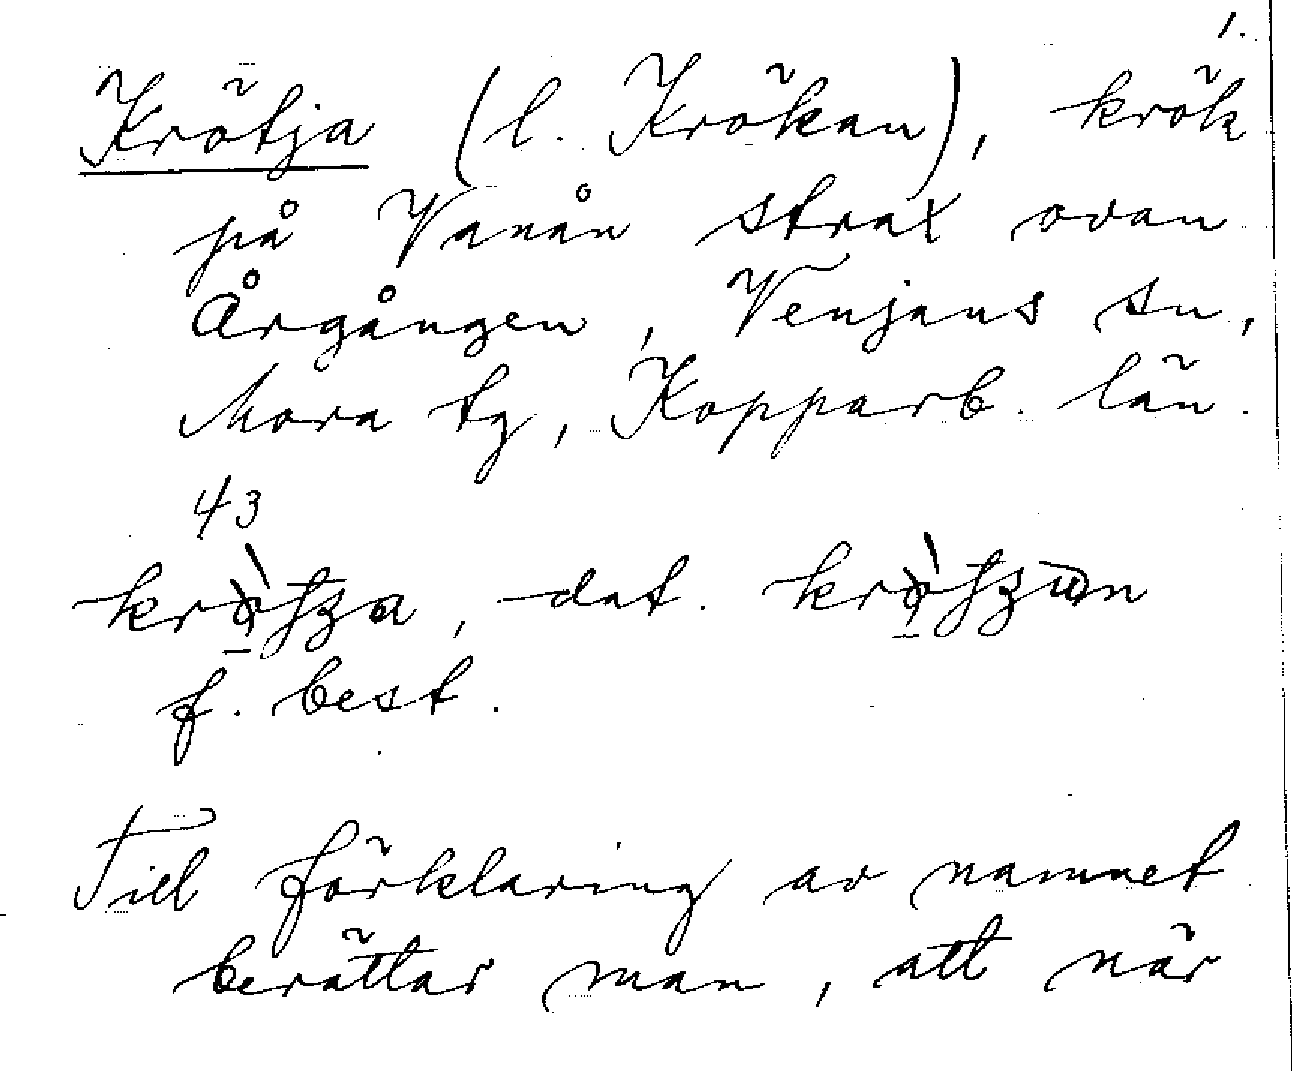 1.
Krötja (l. Krökan), krök
på Vanån strax ovan
Årgången, Venjans sn,
Mora tg, Kopparb. län.
43
dat.
f. best.
Till förklaring av namnet
berättar man, att när